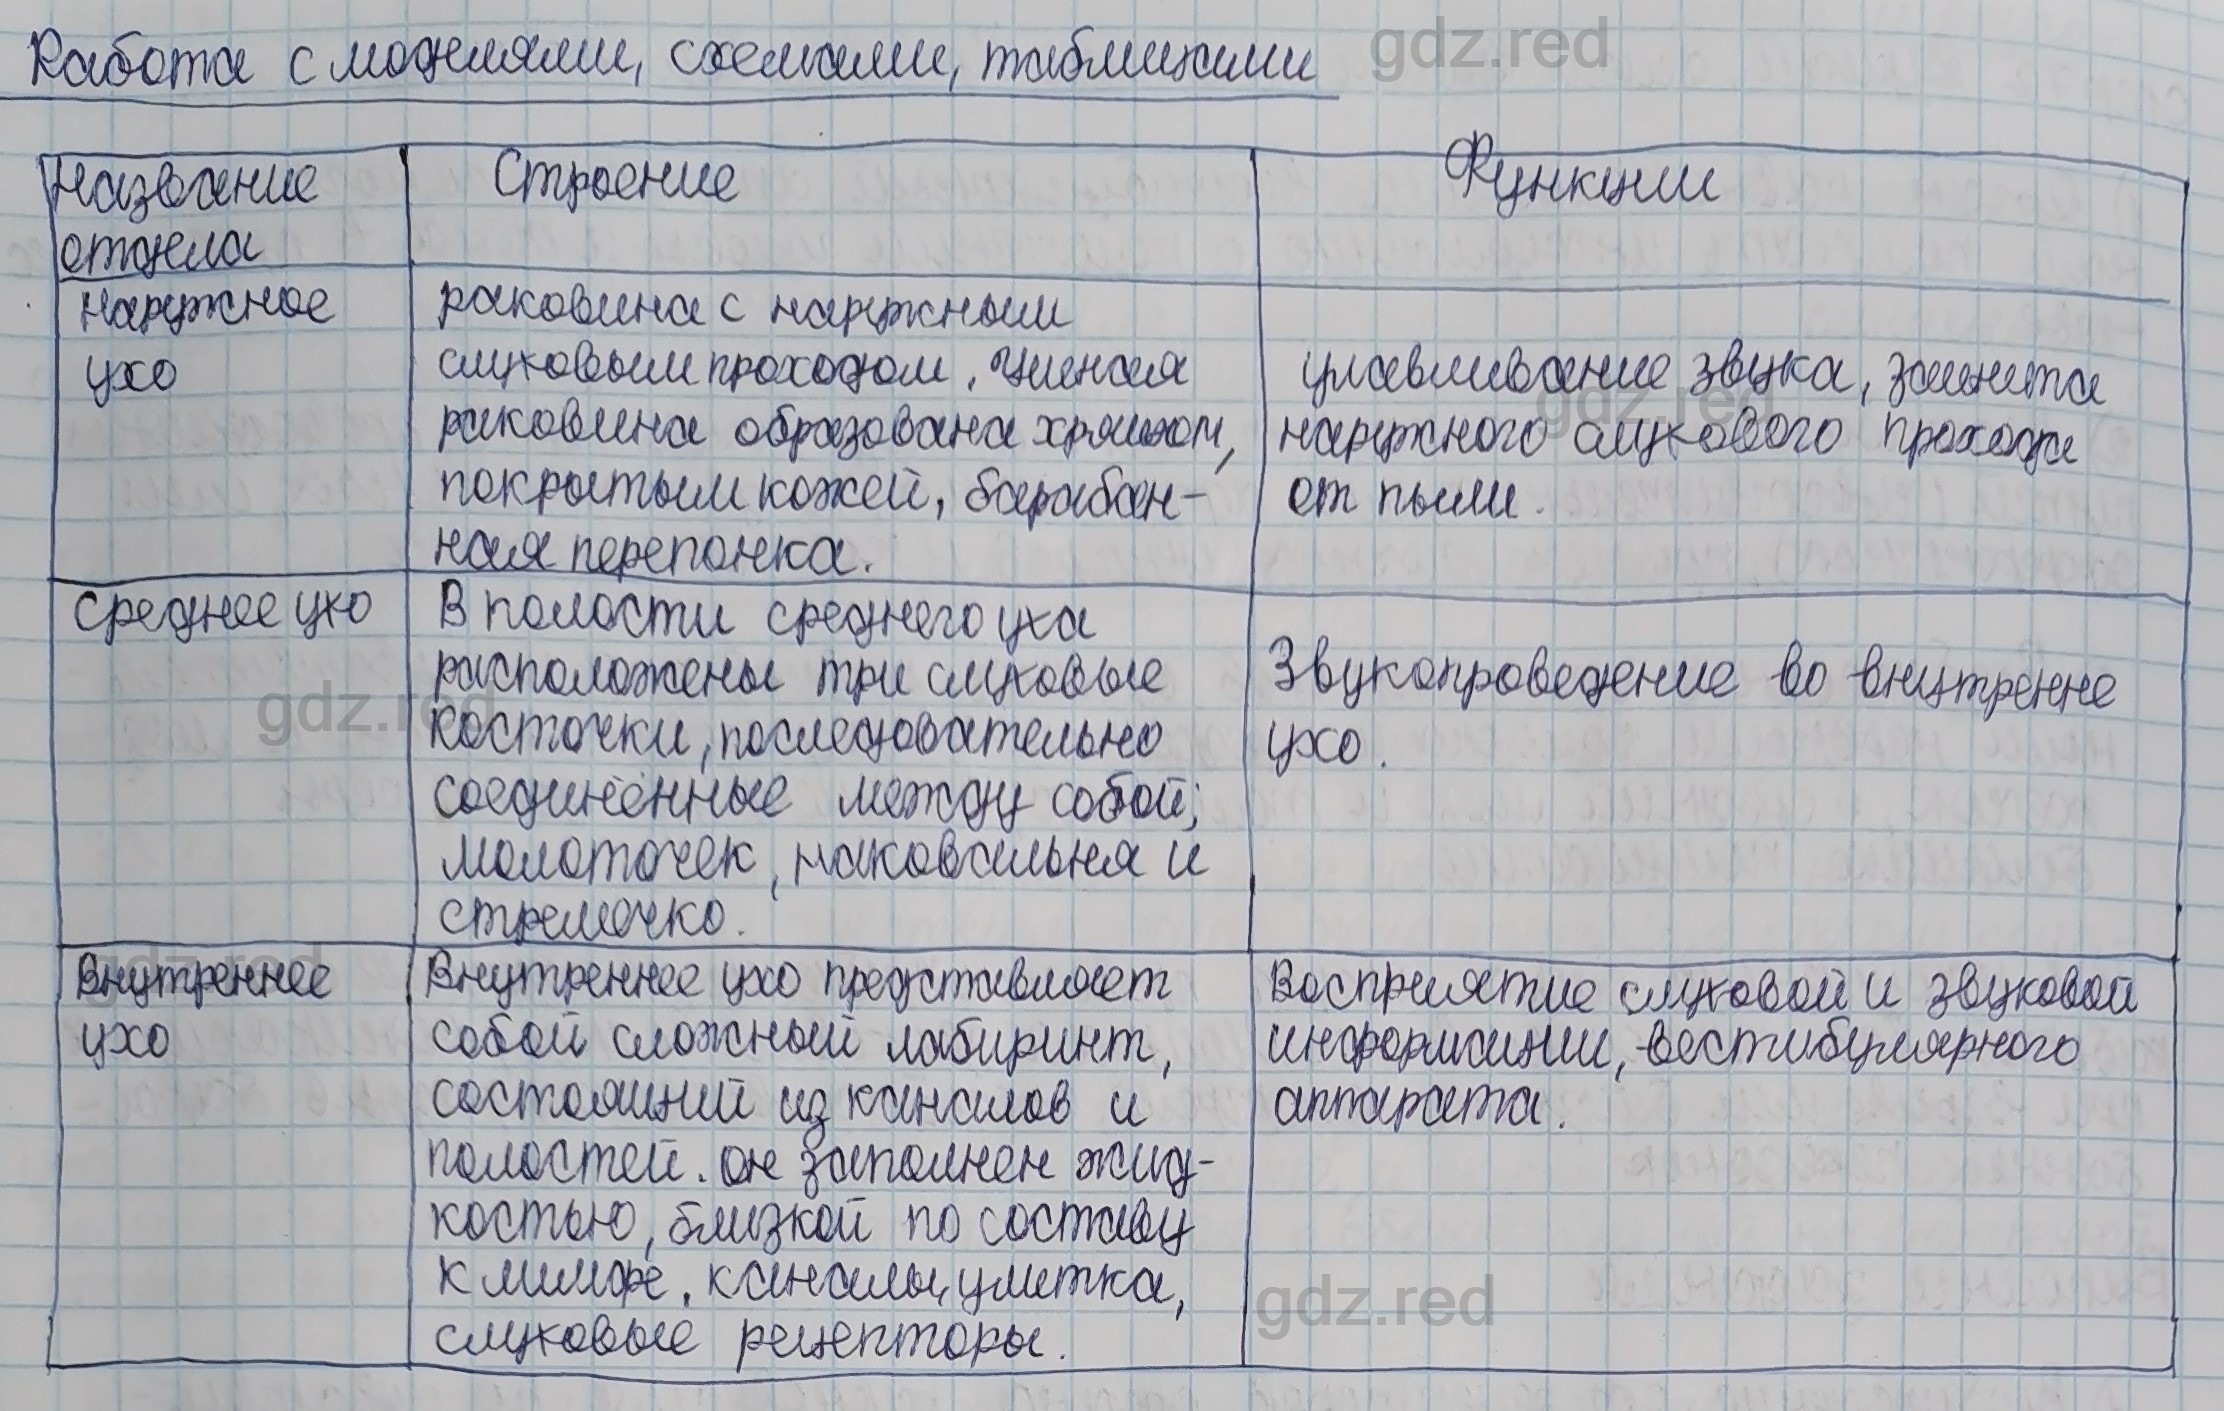 Работа с моделями, схемами, таблицами
gdz.red
Название
отдела
Строение
Функции
наружное
ухо
раковина с наружным
слуховым проходом. Ушная
раковина образована хрящом,
покрытым кожей, барабан-
ная перепонка.
улавливание звука, защита
gdz.red
наружного слухового прохода
от пыли.
среднее ухо
gdz.red
В полости среднего уха
расположены три слуховые
косточки, последовательно
соединённые между собой;
молоточек, наковальня и
стремечко.
Звукопроведение во внутренне
ухо.
gdz.red
внутреннее
ухо
Внутреннее ухо представляет
собой сложный лабиринт,
состоящий из каналов и
полостей. он заполнен жид-
костью, близкой по составу
к лимфе. каналы, улитка,
слуховые рецепторы.
Восприятие слуховой и звуковой
информации, вестибулярного
аппарата.
gdz.red